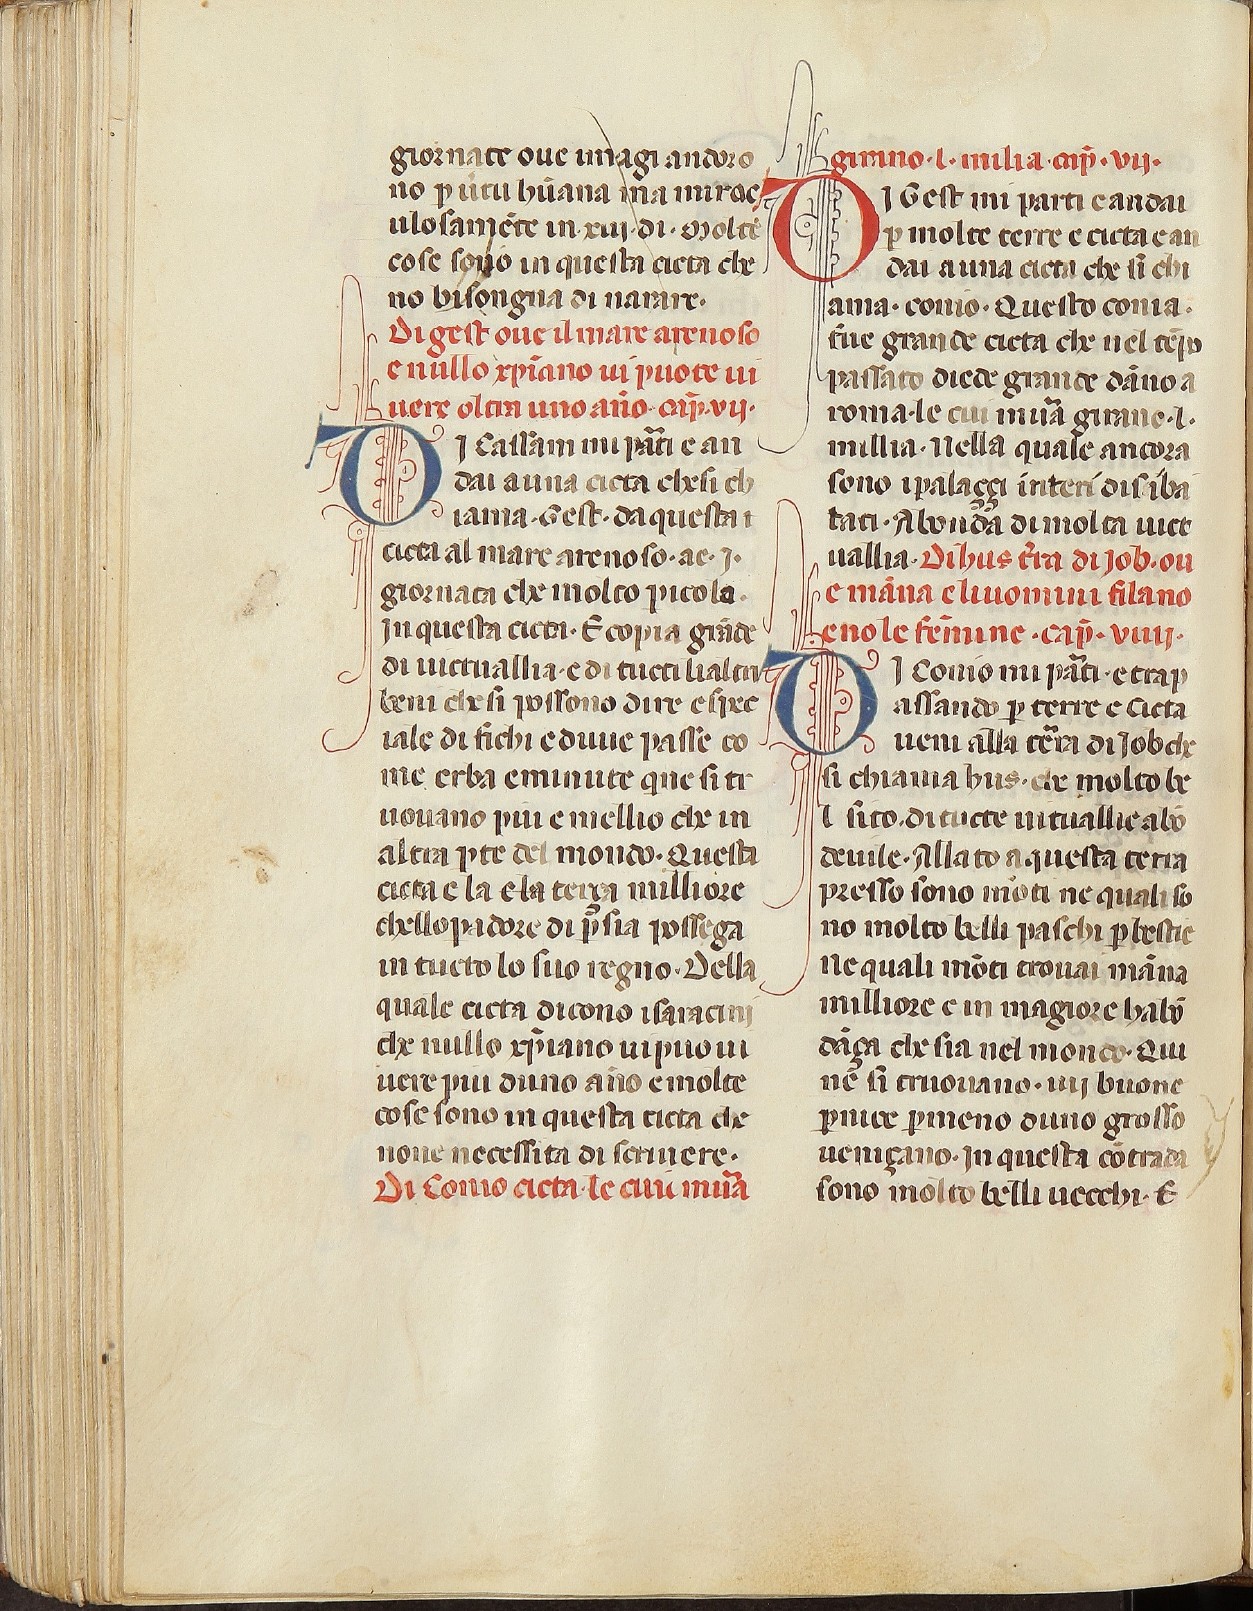 giornate oue imagi andoro
no p uirtu hũana ma mirac
ulosamẽte in xiij di. Molte
cose sono in questa citta che
no bisongna di narare.
Di gest oue il mare arenoso
e nullo xp̃iano ui puote ui
uere oltra uno año. cap̃. vij.
DI Cassam mi parti e an
dai a una citta che si ch
iama. Gest. da questa
citta al mare arenoso. ae. j.
giornata che molto picola.
In questa citta. E copia grãde
di uictuallia. e di tucti li altri
beni che si possono dire e spec
iale di fichi e duue passe co
me erba e minute que si tr
uouano piu e mellio che in
altra pte del mondo. Questa
citta e la e la terça milliore
chello padore di p̃sia possega
in tucto lo suo regno. Della
quale citta dicono i saracini
che nullo xp̃iano ui puo ui
uere piu duno año e molte
cose sono in questa citta che
none necessita di scriuere.
Di Comо citta. le cuii mura
girano. l. milia. cap̃. vij.
DI Gest mi parti e andai
p molte terre e citta e an
dai a una citta che si chi
ama. como. Questo coma.
fue grande citta che nel tẽpo
passato diede grande dãno a
roma. le cui mura girano. l.
millia. Nella quale ancora
sono i palaççi interi disiba
tati. Abonda di molta uict
uallia. Di hus tr̃a di Job. ou
e mãna e li uomini filano
e no le femine. cap̃. viiij.
DI Como mi parti. e trap
assando p terre e Citta
ueni alla terra di Job che
si chiama hus. che molto be
l sito. di tucte uituallie abo
deuile. Allato a questa terra
presso sono mõti ne quali so
no molto belli paschi p bestie
Ne quali mõti trouai mãna
milliore e in magiore habõ
dãça che sia nel mondo. Qui
ne si truouano. iiij buone
pnice p meno duno grosso
uenigano. In questa cõtrada
sono molto belli uecchi. E